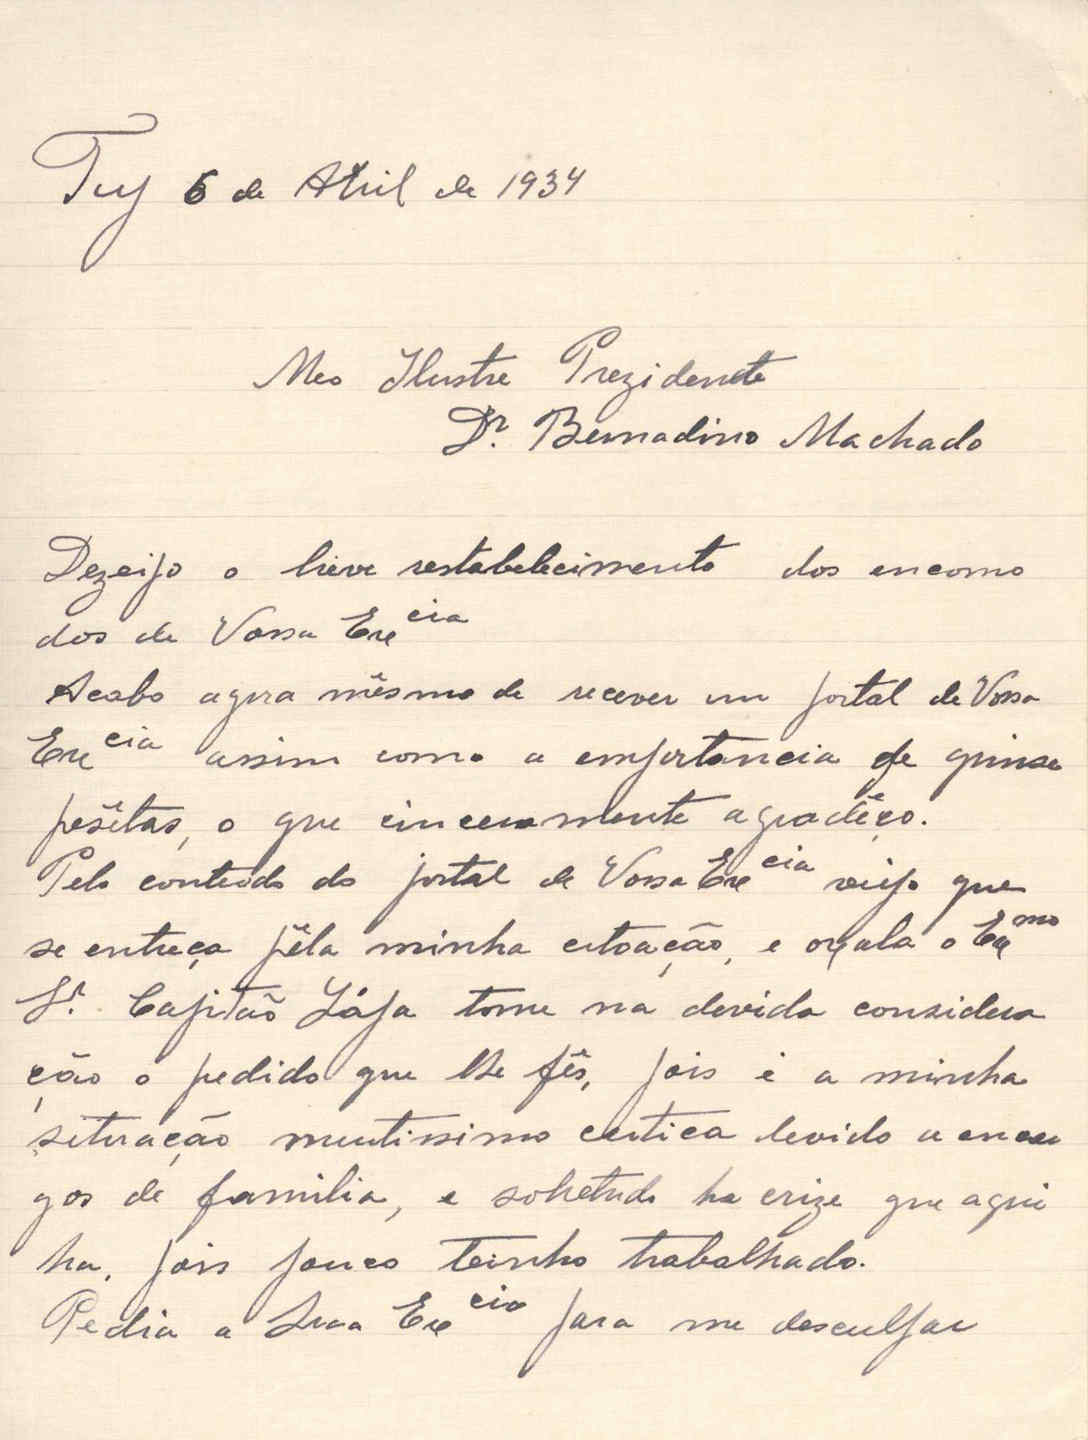 Tuy 6 de Abril de 1934
Meo Ilustre Prezidente
Dr. Bernadino Machado
Dezeijo o breve restabelecimento dos encomo
dos de Vossa Excia
Acabo agora mêsmo de recever um portal de Vossa
Excia assim como a emportancia de quinze
pesêtas, o que cinceramente agradêço.
Pelo conteodo do portal de Vossa Excia veijo que
se entreça pêla minha citoação, e oxala o Exmo
Sr. Capitão Jája tome na devida considera
ção o pedido que lhe fês, pois é a minha
setuação muntissimo cretica devido a encar
gos de familia, e sobetudo ha crize que aqui
ha, pois pouco teinho trabalhado.
Pedia a Sua Excia para me desculpar